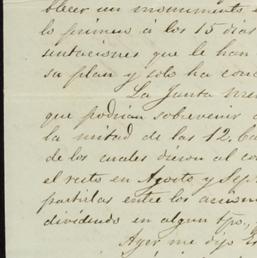 blecer un monumento
lo primero á los 15 dias
sentaciones que le han
su plan y solo ha con
La Junta
que podrian sobrevenir
la mitad de las 12.
de los cuales dieron al
el resto en Agosto y Sep
partirlas entre los
dividendo en algun tpo,
Ayer me dijo